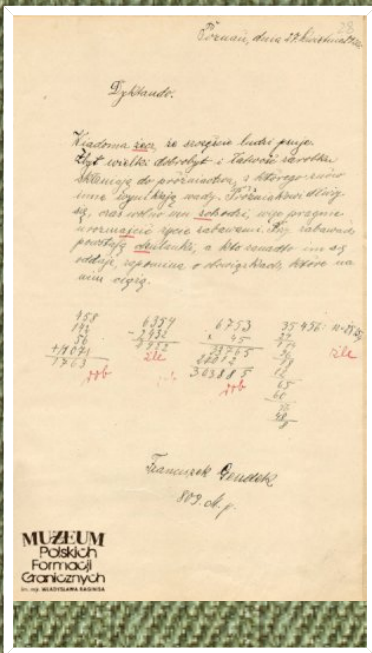 28
Poznań, dnia 27. kwietnia
Dyktando.
Wiadoma żecz, że szczęście ludzi psuje.
Zbyt wielki dobrobyt i łatwość zarobku
skłeniają do próżniactwa, z którego znów
inne wynikają wady. Próżniakowi dłuży
się, czas wolno mu schodzi, więc pragnie
urozmajcić życie zabawami. Przy zabawach
powstają, a kto zanadto im się
oddaje, zapomina o obowiązkach, które na
nim ciążą.
458 6354 6753 35456:
142 - 2932 × 45
56 źle 33765 źle
+1107
1763 303885
dob dob
Franciszek Gendek
809. M. p.
MUZEUM
Polskich
Formacji
Granicznych
im. mjr. WŁADYSŁAWA RAGINISA